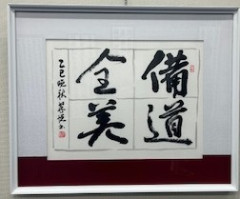 備道
全美
乙巳晚秋